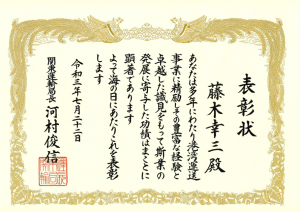 表彰状
藤木幸三殿
あなたは多年にわたり港湾運送
事業に精励しその豊富な経験と
卓越した識見をもって斯業の
発展に寄与した功績はまことに
顕著であります
よって海の日にあたりこれを表彰
します
令和三年七月二十二日
関東運輸局長 河村俊信